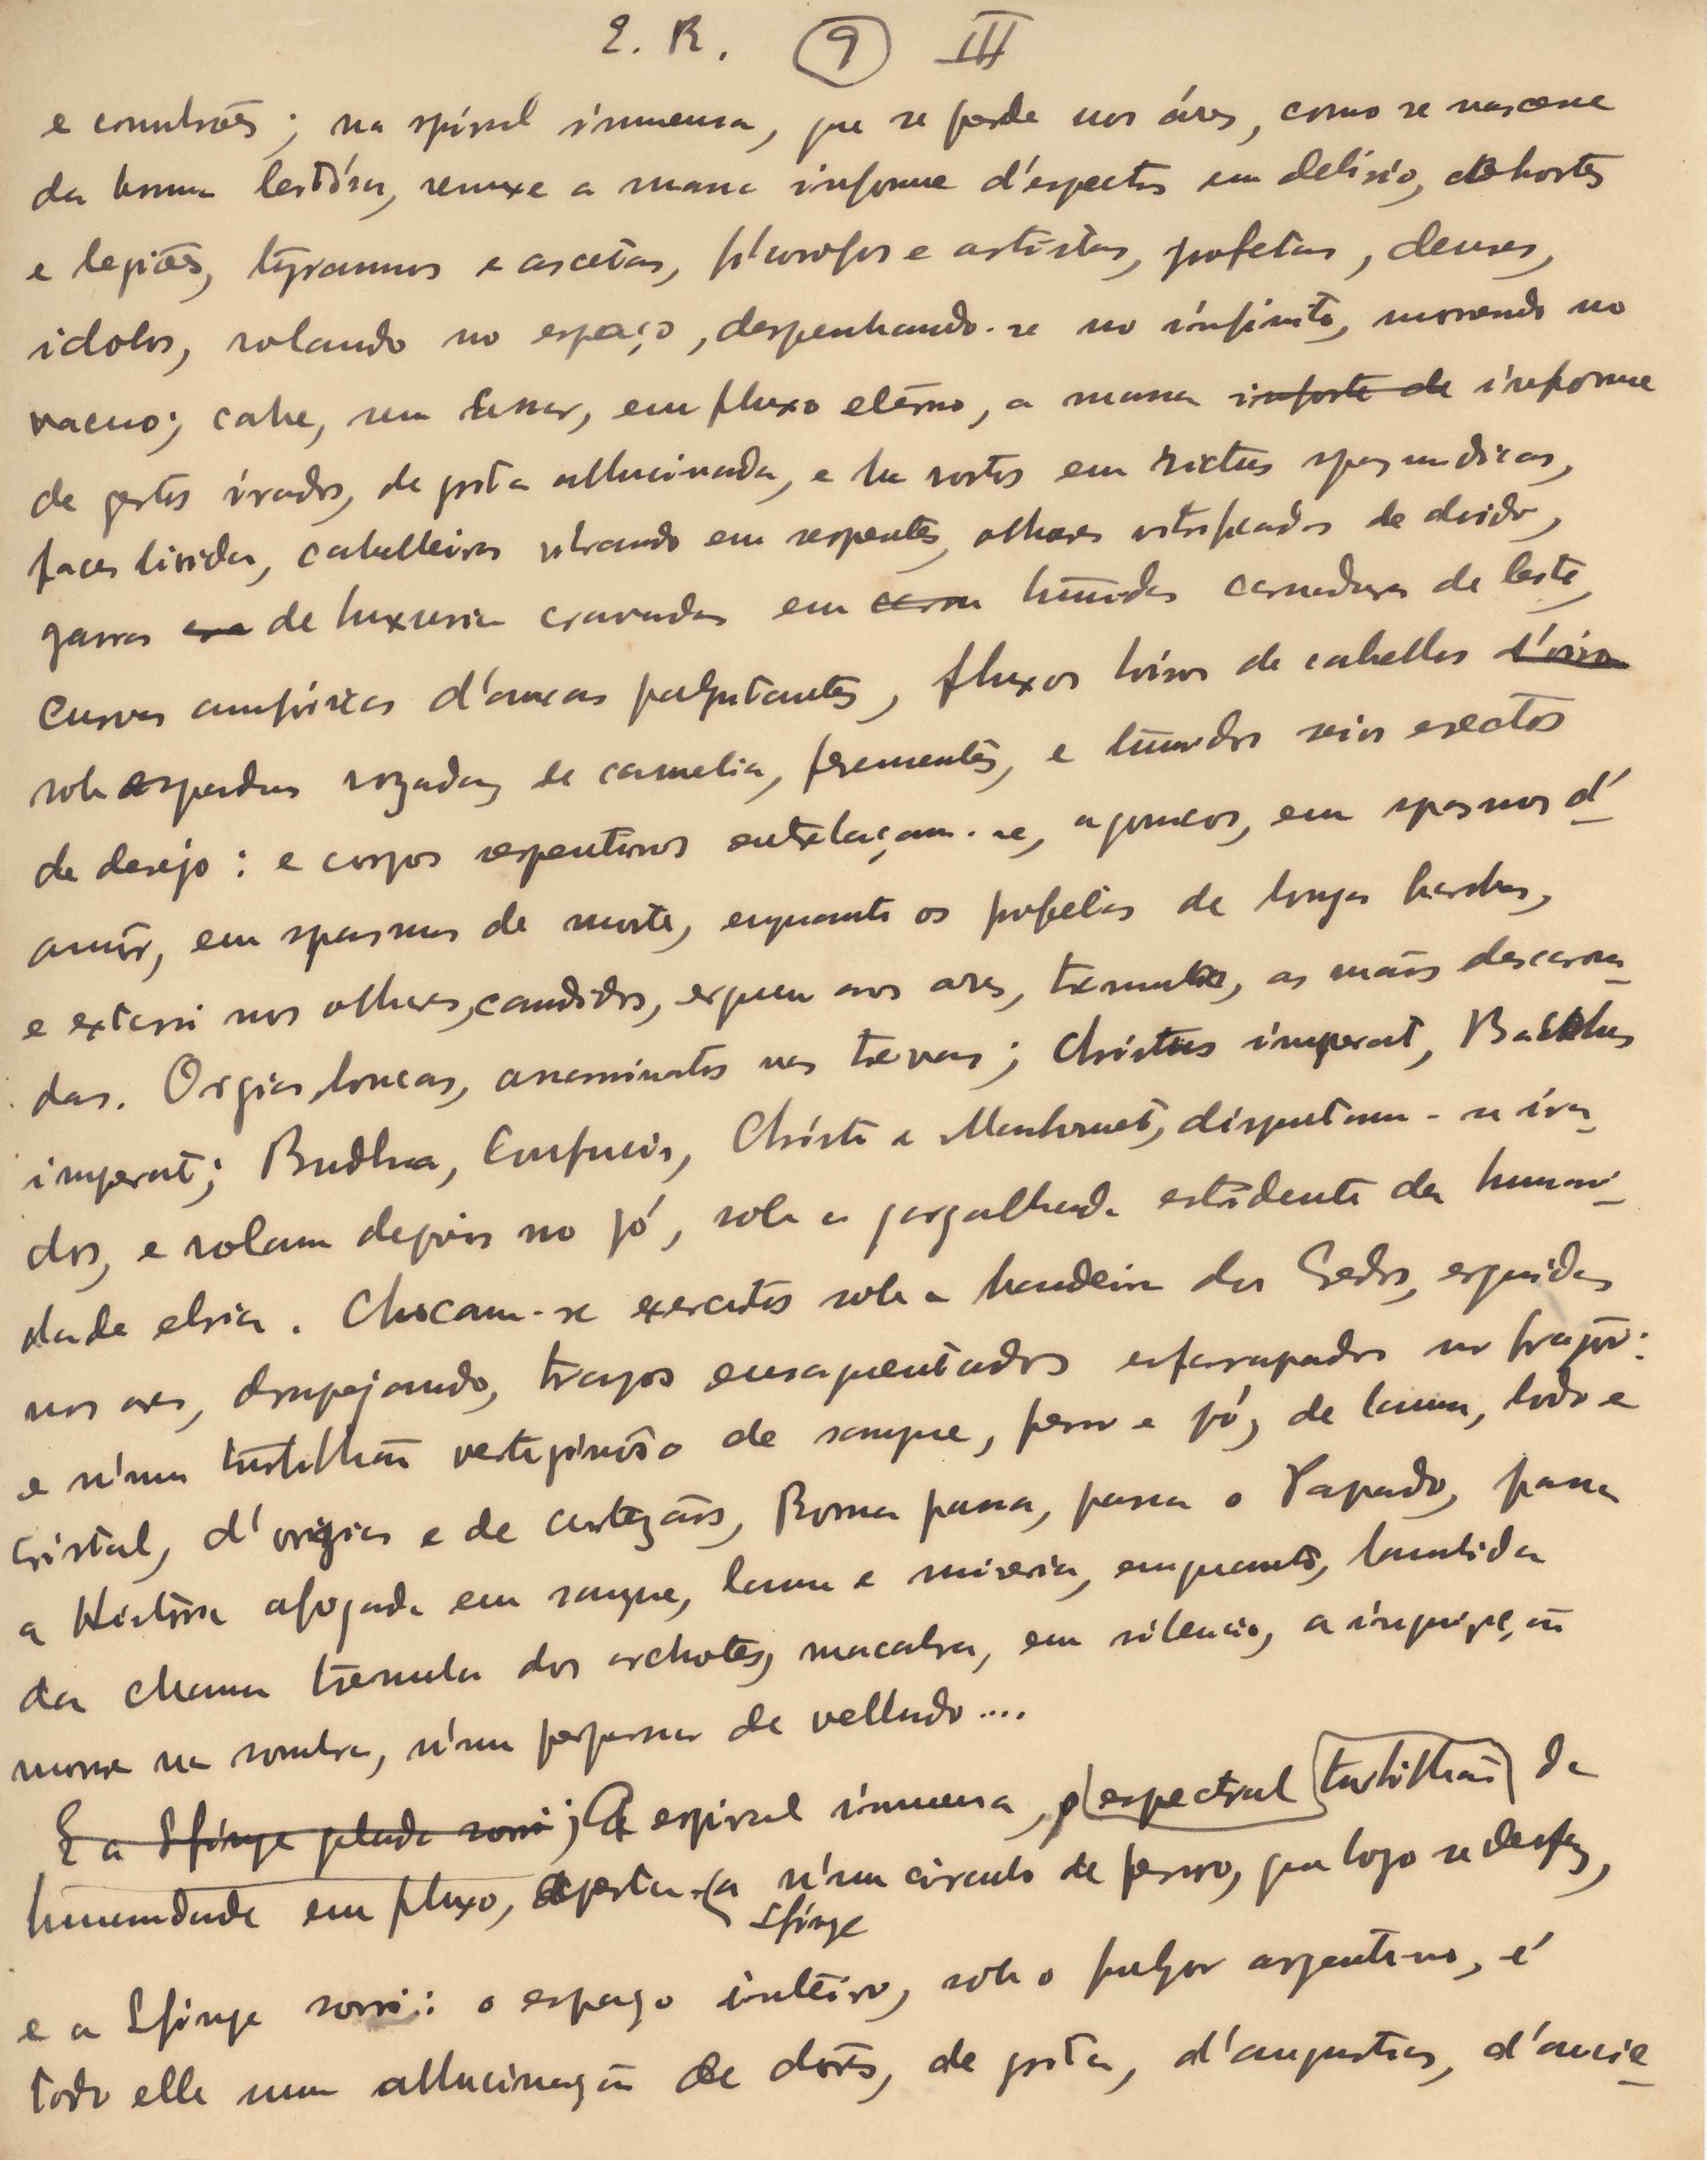 E. R. 9 III
e convulsões; na spiral immensa, que se perde nos áres, como se nascesse
da bruma lectória, remexe a massa informe d'espectros em delirio, cohortes
e legiões, tyrannos e ascetas, filosofos e artistas, profetas, deuses,
idolos, rolando no espaço, despenhando-se no infinito, morrendo no
vacuo; cahe, sem cessar, em fluxo etérno, a massa inforte de informe
de gestos irados, de grita allucinada, e ha rostos em rictus spasmodicos,
faces lividas, cabelleiras vibrando em serpentes, olhares vitrificados de doido,
garras de luxuria cravadas em carne húmidas carnaduras de leite,
curvas amfóricas d'ancas palpitantes, fluxos loiros de cabellos d'oiro
sob espaduas rozadas de camelia, frementes, e túmidos seios erectos
de desejo: e corpos serpentinos entrelaçam-se, agonicos, em spasmos d'
amôr, em spasmos de morte, emquanto os profetas de longas barbas,
e extasi nos olhares, candidos, erguem aos ares, tremulas, as mãos descarna-
das. Orgias loucas, assassinatos nas trevas; Christus imperat, Bacchus
imperat; Budha, Confucio, Christo e Mahomet, disputam-se ira-
dos, e rolam depois no pó, sob a gargalhada estridente da humani-
dade ebria. Chocam-se exercitos sob a bandeira dos Credos, erguidas
nos ares, drapejando, trapos ensaguentados esfarrapados no fragôr:
e n'um turbilhão vertiginoso de sangue, ferro e pó, de lama, lodo e
cristal, d'orgias e de cortezãs, Roma passa, passa o Papado, passa
a História afogada em sangue, lama e miseria, emquanto, lambida
da chama trémula dos archotes, macabra, em silencio, a inquisição
morre na sombra, n'um perpassar de velludo....
E a Sfinge gelada sorri; A espiral immensa, espectral turbilhão da
humanidade em fluxo, aperta-a n'um circulo de ferro, que logo se desfaz,
Sfinge
e a Sfinge sorri: o espaço inteiro, sob o fulgor argentino, é
todo elle uma allucinação de dôres, de grita, d'angustias, d'ancie-